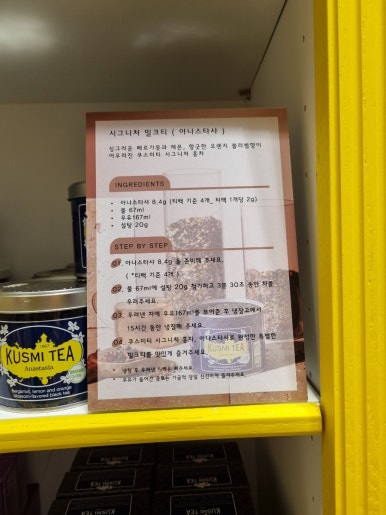 시그니처 밀크티 ( 아나스타샤 )
싱그러운 베르가못과 레몬, 향긋한 오렌지 블라썸향이
어우러진 쿠스미티 시그니처 홍차
INGREDIENTS
• 아나스타샤 8.4g (티백 기준 4개_ 티백 1개당 2g)
• 물 67ml
• 우유167ml
• 설탕 20g
STEP BY STEP
01. 아나스타샤 8.4g 을 준비해 주세요.
( *티백 기준 4개 )
02. 물 67ml에 설탕 20g 첨가하고 3분 30초 동안 차를
우려주세요.
03. 우려낸 차에 우유167ml를 부어준 후 냉장고에서
15시간 동안 냉침해 주세요.
04. 쿠스미티 시그니처 홍차, 아나스타샤로 완성한 특별한
밀크티를 맛있게 즐겨주세요.
• 냉침 후 우려낸 티백은 빼주세요.
KUSMI TEA
KUSMI TEA
Anastasia
Bergamot, lemon and orange
blossom-flavored black tea